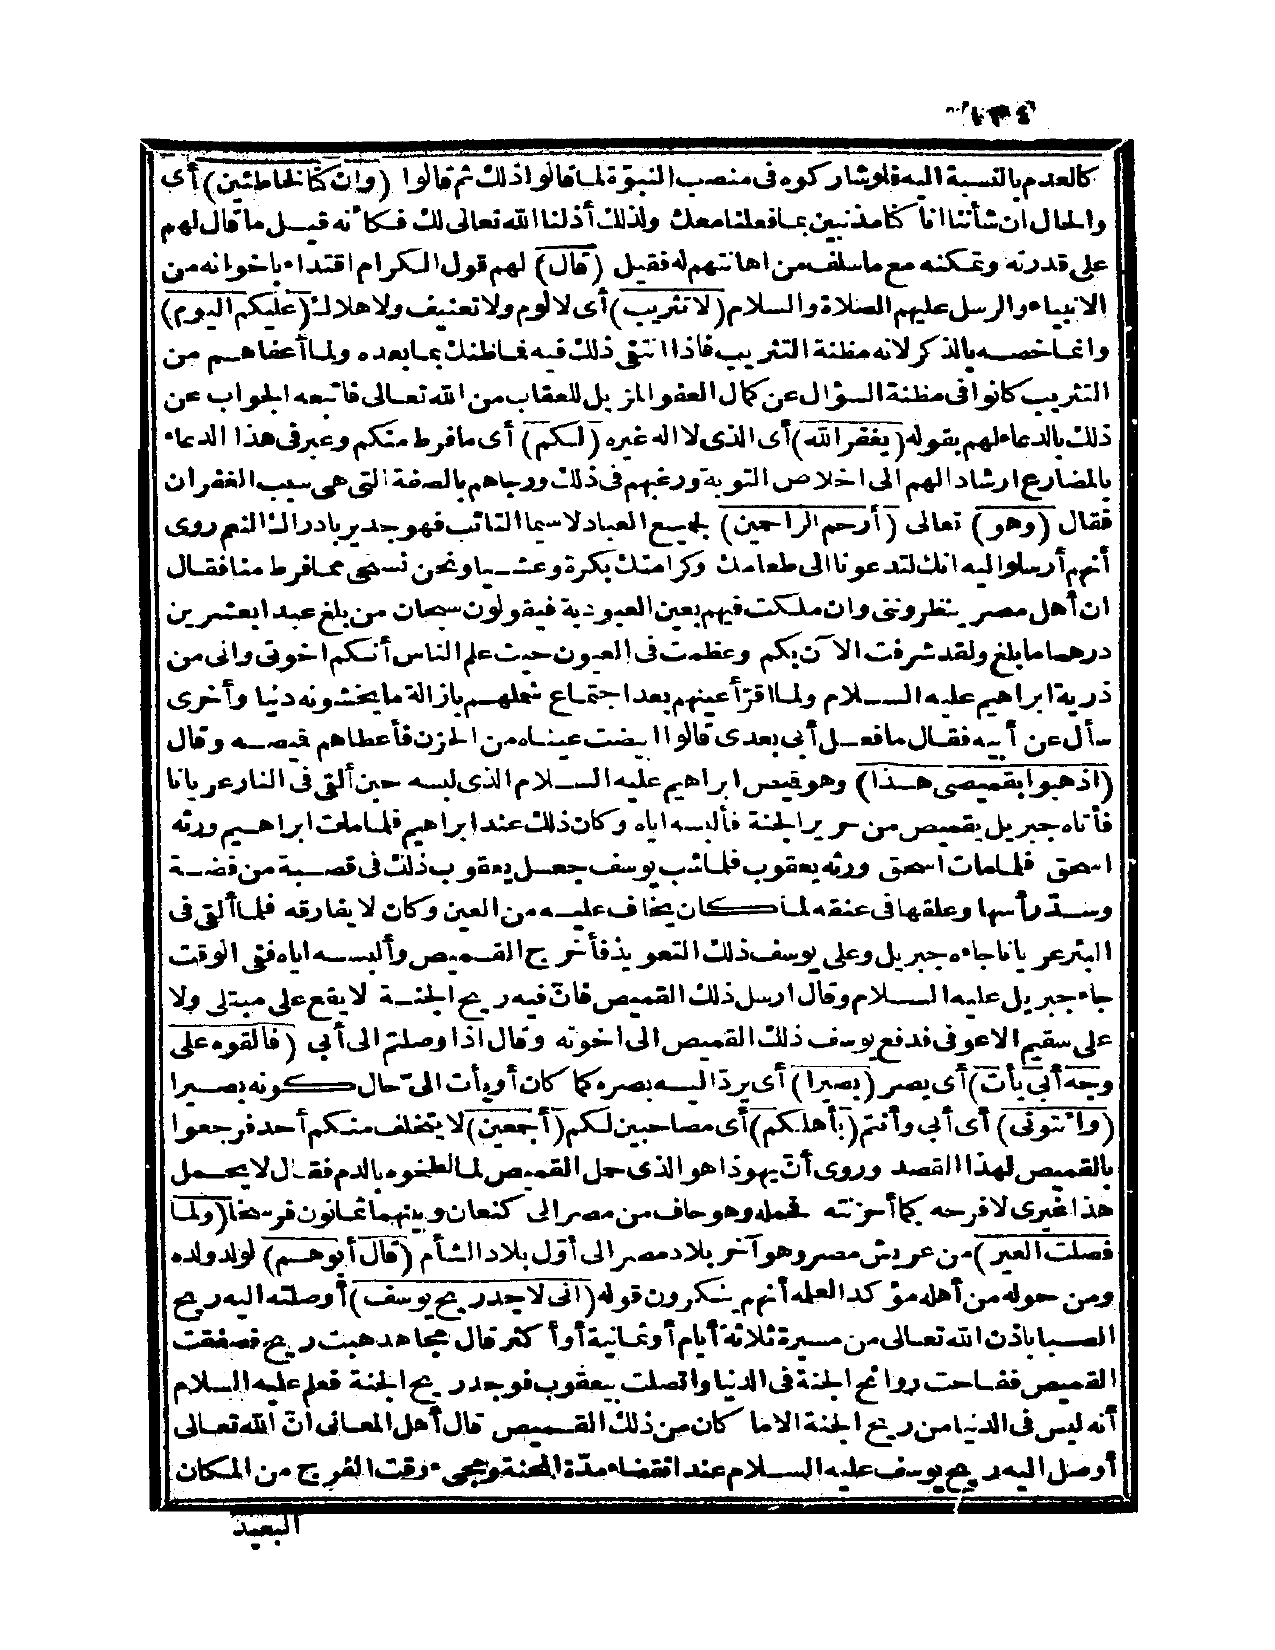 ١٣٤
كالعدم بالنسبة اليه فلو شاركوه فى منصب النبوّة لما قالوا ذلك ثم قالوا (وان كنا لخاطئين) أى
والحال ان شأننا انا كنا مذنبين بما فعلنا معك ولذلك أذلنا الله تعالى لك فكأنه قيل ما قال لهم
على قدرته وتمكنه مع ما سلف من اهانتهم له فقيل (قال) لهم قول الكرام اقتداء باخوانه من
الانبياء والرسل عليهم الصلاة والسلام (لا تثريب) أى لا لوم ولا تعنيف ولا هلاك (عليكم اليوم)
وانما خصه بالذكر لانه مظنة التثريب فاذا انتفى ذلك فيه فما ظنك بما بعده ولما أعفاهم من
التثريب كانوا فى مظنة السؤال عن كمال العفو المزيل للعقاب من الله تعالى فأتبعه الجواب عن
ذلك بالدعاء لهم بقوله (يغفر الله) أى الذى لا اله غيره (لكم) أى ما فرط منكم وعبر فى هذا الدعاء
بالمضارع ارشادا لهم الى اخلاص التوبة ورغبهم فى ذلك ورجاهم بالصفة التى هى سبب الغفران
فقال (وهو) تعالى (أرحم الراحمين) لجميع العباد لا سيما التائب فهو جدير بادراك النعم روى
أنهم أرسلوا اليه انك لتدعونا الى طعامك وكرامتك بكرة وعشيا ونحن نستحى مما فرط منا فقال
ان أهل مصر ينظرونى وان ملكت فيهم بعين العبودية فيقولون سبحان من بلغ عبدا بيع بعشرين
درهما ما بلغ ولقد شرفت الآن بكم وعظمت فى العيون حيث علم الناس أنكم اخوتى وانى من
ذرية ابراهيم عليه السلام ولما اقرّ أعينهم بعد اجتماع شملهم بازالة ما يخشونه دنيا وأخرى
سأل عن أبيه فقال ما فعل أبى بعدى قالوا ابيضت عيناه من الحزن فأعطاهم قميصه وقال
(اذهبوا بقميصى هذا) وهو قميص ابراهيم عليه السلام الذى لبسه حين ألقى فى النار عريانا
فأتاه جبريل بقميص من حرير الجنة فألبسه اياه وكان ذلك عند ابراهيم فلما مات ابراهيم ورثه
اسحق فلما مات اسحق ورثه يعقوب فلما شب يوسف جعل يعقوب ذلك فى قصبة من فضة
وسدّ رأسها وعلقها فى عنقه لما كان يخاف عليه من العين وكان لا يفارقه فلما ألقى فى
البئر عريانا جاءه جبريل وعلى يوسف ذلك التعويذ فأخرج القميص وألبسه اياه ففى الوقت
جاء جبريل عليه السلام وقال ارسل ذلك القميص فانّ فيه ريح الجنة لا يقع على مبتلى ولا
على سقيم الا عوفى فدفع يوسف ذلك القميص الى اخوته وقال اذا وصلتم الى أبى (فألقوه على
وجه أبى يأت) أى يصر (بصيرا) أى يردّ اليه بصره كما كان أو يأت الىّ حال كونه بصيرا
(وائتونى) أى أبى وأنتم (بأهلكم) أى مصاحبين لكم (أجمعين) لا يتخلف منكم أحد فرجعوا
بالقميص لهذا القصد وروى أنّ يهوذا هو الذى حمل القميص لما لطخوه بالدم فقال لا يحمل
هذا غيرى لافرحه كما أحزنته فحمله وهو حاف من مصر الى كنعان وبينهما ثمانون فرسخا (ولما
فصلت العير) من عريش مصر وهو آخر بلاد مصر الى أوّل بلاد الشأم (قال أبوهم) لولد ولده
ومن حوله من أهله مؤكدا لعلمه أنهم ينكرون قوله (انى لاجد ريح يوسف) أوصلته اليه ريح
الصبا باذن الله تعالى من مسيرة ثلاثة أيام أو ثمانية أو أكثر قال مجاهد هبت ريح فصفقت
القميص ففاحت روائح الجنة فى الدنيا واتصلت بيعقوب فوجد ريح الجنة فعلم عليه السلام
أنه ليس فى الدنيا من ريح الجنة الا ما كان من ذلك القميص قال أهل المعانى انّ الله تعالى
أوصل اليه ريح يوسف عليه السلام عند انقضاء مدّة المحنة ومجىء وقت الفرج من المكان
البعيد